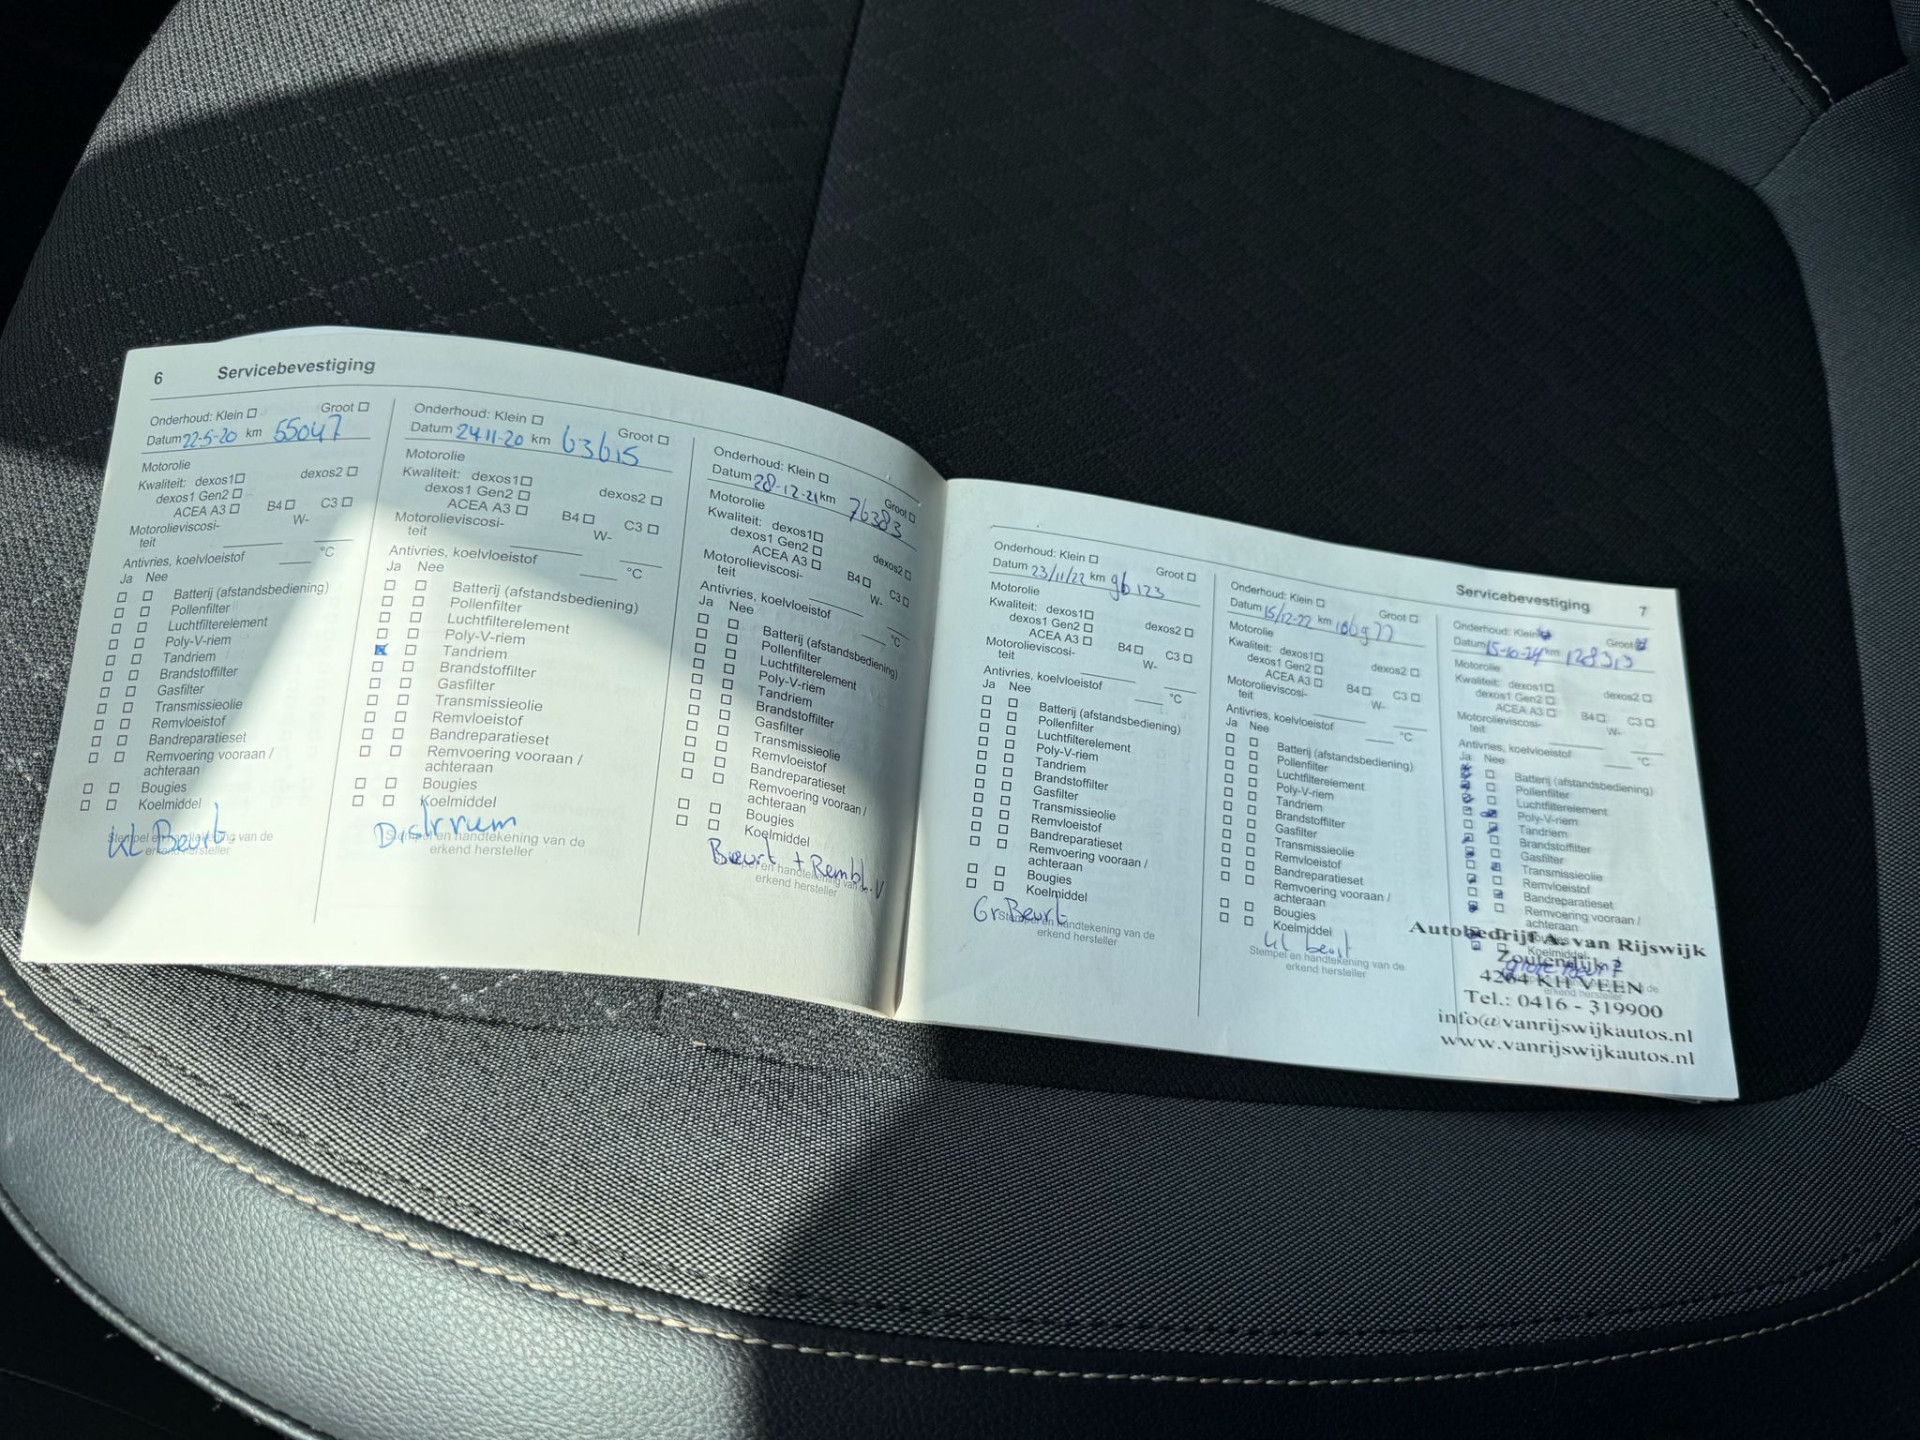 6 Servicebevestiging
Onderhoud: Klein Groot
Datum 22-5-20 km 55047
Motorolie
Kwaliteit: dexos1 dexos2
dexos1 Gen2
ACEA A3 B4 C3
Motorolieviscosi- W-
teit
Antivries, koelvloeistof °C
Ja Nee
Batterij (afstandsbediening)
Pollenfilter
Luchtfilterelement
Poly-V-riem
Tandriem
Brandstoffilter
Gasfilter
Transmissieolie
Remvloeistof
Bandreparatieset
Remvoering vooraan /
achteraan
Bougies
Koelmiddel
Stempel en handtekening van de
erkend hersteller
KL Beurt
Onderhoud: Klein Groot
Datum 24-11-20 km 63615
Motorolie
Kwaliteit: dexos1 dexos2
dexos1 Gen2
ACEA A3 B4 C3
Motorolieviscosi- W-
teit
Antivries, koelvloeistof °C
Ja Nee
Batterij (afstandsbediening)
Pollenfilter
Luchtfilterelement
Poly-V-riem
Tandriem
Brandstoffilter
Gasfilter
Transmissieolie
Remvloeistof
Bandreparatieset
Remvoering vooraan /
achteraan
Bougies
Koelmiddel
Distr riem
Stempel en handtekening van de
erkend hersteller
Onderhoud: Klein Groot
Datum 28-12-21 km 76383
Motorolie
Kwaliteit: dexos1 dexos2
dexos1 Gen2
ACEA A3 B4 C3
Motorolieviscosi- W-
teit
Antivries, koelvloeistof °C
Ja Nee
Batterij (afstandsbediening)
Pollenfilter
Luchtfilterelement
Poly-V-riem
Tandriem
Brandstoffilter
Gasfilter
Transmissieolie
Remvloeistof
Bandreparatieset
Remvoering vooraan /
achteraan
Bougies
Koelmiddel
Beurt + Rembl.V
Stempel en handtekening van de
erkend hersteller
Servicebevestiging 7
Onderhoud: Klein Groot
Datum 23/11/22 km 96123
Motorolie
Kwaliteit: dexos1 dexos2
dexos1 Gen2
ACEA A3 B4 C3
Motorolieviscosi- W-
teit
Antivries, koelvloeistof °C
Ja Nee
Batterij (afstandsbediening)
Pollenfilter
Luchtfilterelement
Poly-V-riem
Tandriem
Brandstoffilter
Gasfilter
Transmissieolie
Remvloeistof
Bandreparatieset
Remvoering vooraan /
achteraan
Bougies
Koelmiddel
Gr Beurt
Stempel en handtekening van de
erkend hersteller
Onderhoud: Klein Groot
Datum 15/12-22 km 106977
Motorolie
Kwaliteit: dexos1 dexos2
dexos1 Gen2
ACEA A3 B4 C3
Motorolieviscosi- W-
teit
Antivries, koelvloeistof °C
Ja Nee
Batterij (afstandsbediening)
Pollenfilter
Luchtfilterelement
Poly-V-riem
Tandriem
Brandstoffilter
Gasfilter
Transmissieolie
Remvloeistof
Bandreparatieset
Remvoering vooraan /
achteraan
Bougies
Koelmiddel
KL beurt
Stempel en handtekening van de
erkend hersteller
Onderhoud: Klein Groot
Datum 15-10-24 km
Motorolie
Kwaliteit: dexos1 dexos2
dexos1 Gen2
ACEA A3 B4 C3
Motorolieviscosi- W-
teit
Antivries, koelvloeistof °C
Ja Nee
Batterij (afstandsbediening)
Pollenfilter
Luchtfilterelement
Poly-V-riem
Tandriem
Brandstoffilter
Gasfilter
Transmissieolie
Remvloeistof
Bandreparatieset
Remvoering vooraan /
achteraan
Bougies
Koelmiddel
grote Beurt
Autobedrijf A. van Rijswijk
Zoutendijk 2
4264 KH VEEN
Tel.: 0416 - 319900
info@vanrijswijkautos.nl
www.vanrijswijkautos.nl